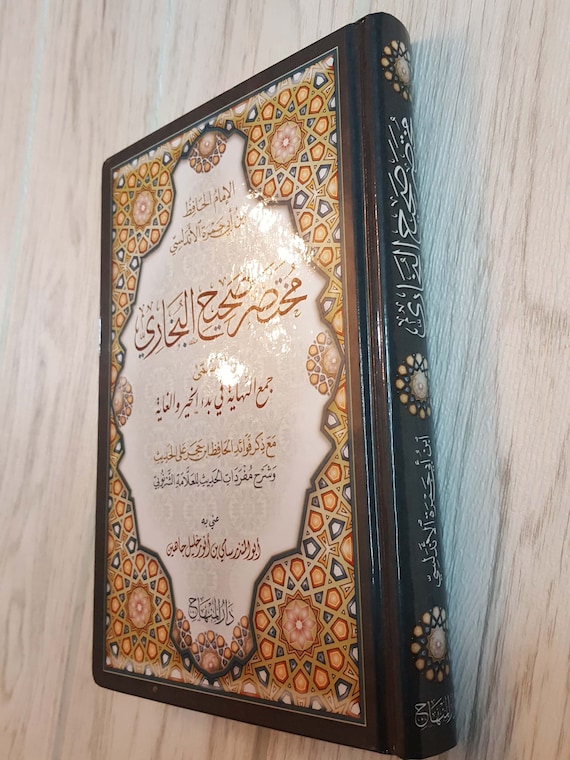 الإمام الحافظ
ابن أبي جمرة الأندلسي
مختصر صحيح البخاري
جمع النهاية في بدء الخير والغاية
مع ذكر فوائد الحافظ ابن حجر على الحديث
وشرح مفردات الحديث للعلامة الشرنوبي
عني به
أبو المنذر سامي بن أنور خليل جاهين
دار المنهاج
مختصر صحيح البخاري
ابن أبي جمرة الأندلسي
المنهاج